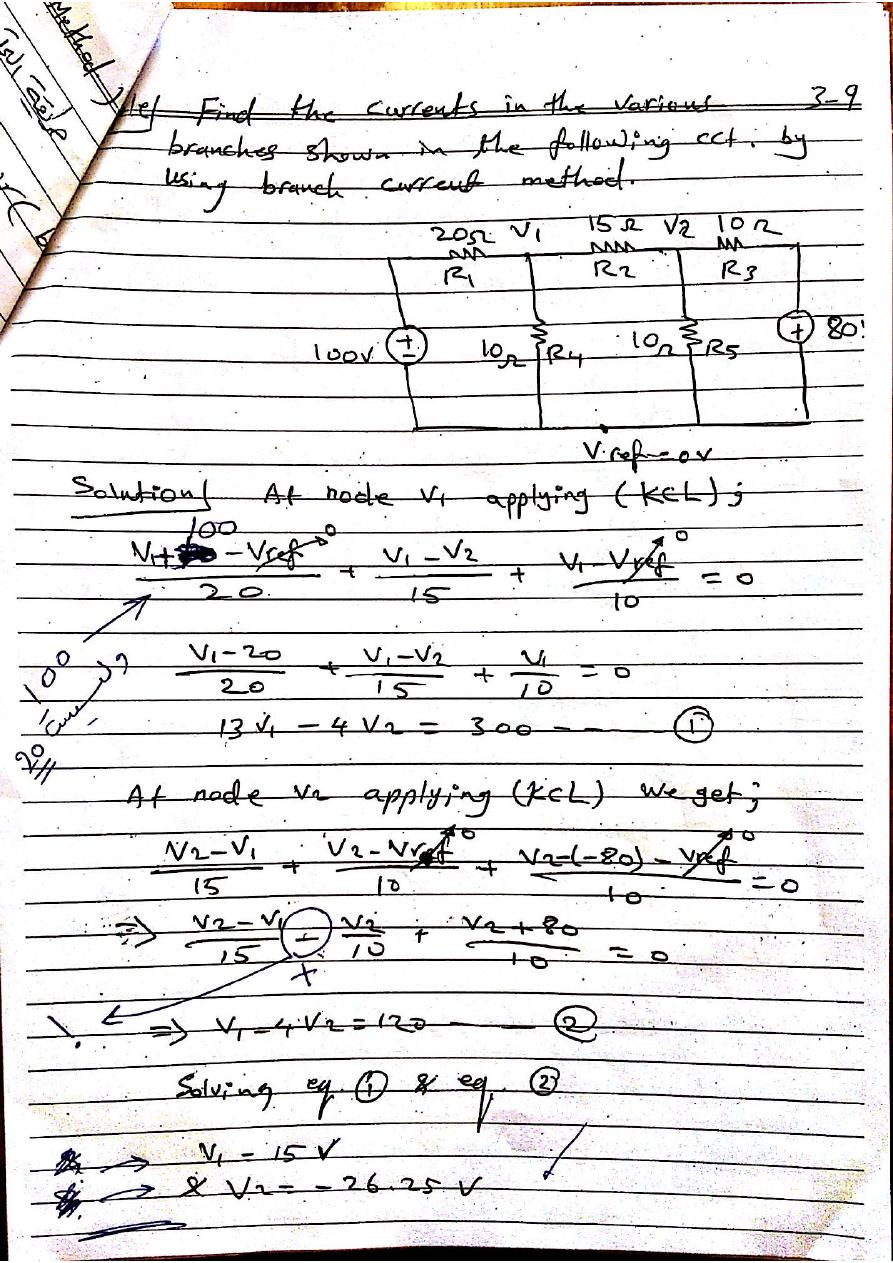 Method)
Find the currents in the various 3-9
branches shown in the following cct. by
using branch current method.
20Ω V1 15Ω V2 10Ω
R1 R2 R3
100V 10Ω R4 10Ω R5 80
V.ref=0V
Solution/ At node V1 applying (KCL);
(V1+100 - Vref→0)/20 + (V1-V2)/15 + (V1-Vref→0)/10 = 0
100
20
(V1-20)/20 + (V1-V2)/15 + V1/10 = 0
13V1 - 4V2 = 300 --- ①
At node V2 applying (KCL) we get;
(V2-V1)/15 + (V2-Vref→0)/10 + (V2-(-80)-Vref→0)/10 = 0
⇒ (V2-V1)/15 - V2/10 + (V2+80)/10 = 0
+
⇒ V1-4V2=120 --- ②
Solving eq. ① & eq. ②
→ V1 = 15 V
→ & V2 = -26.25 V